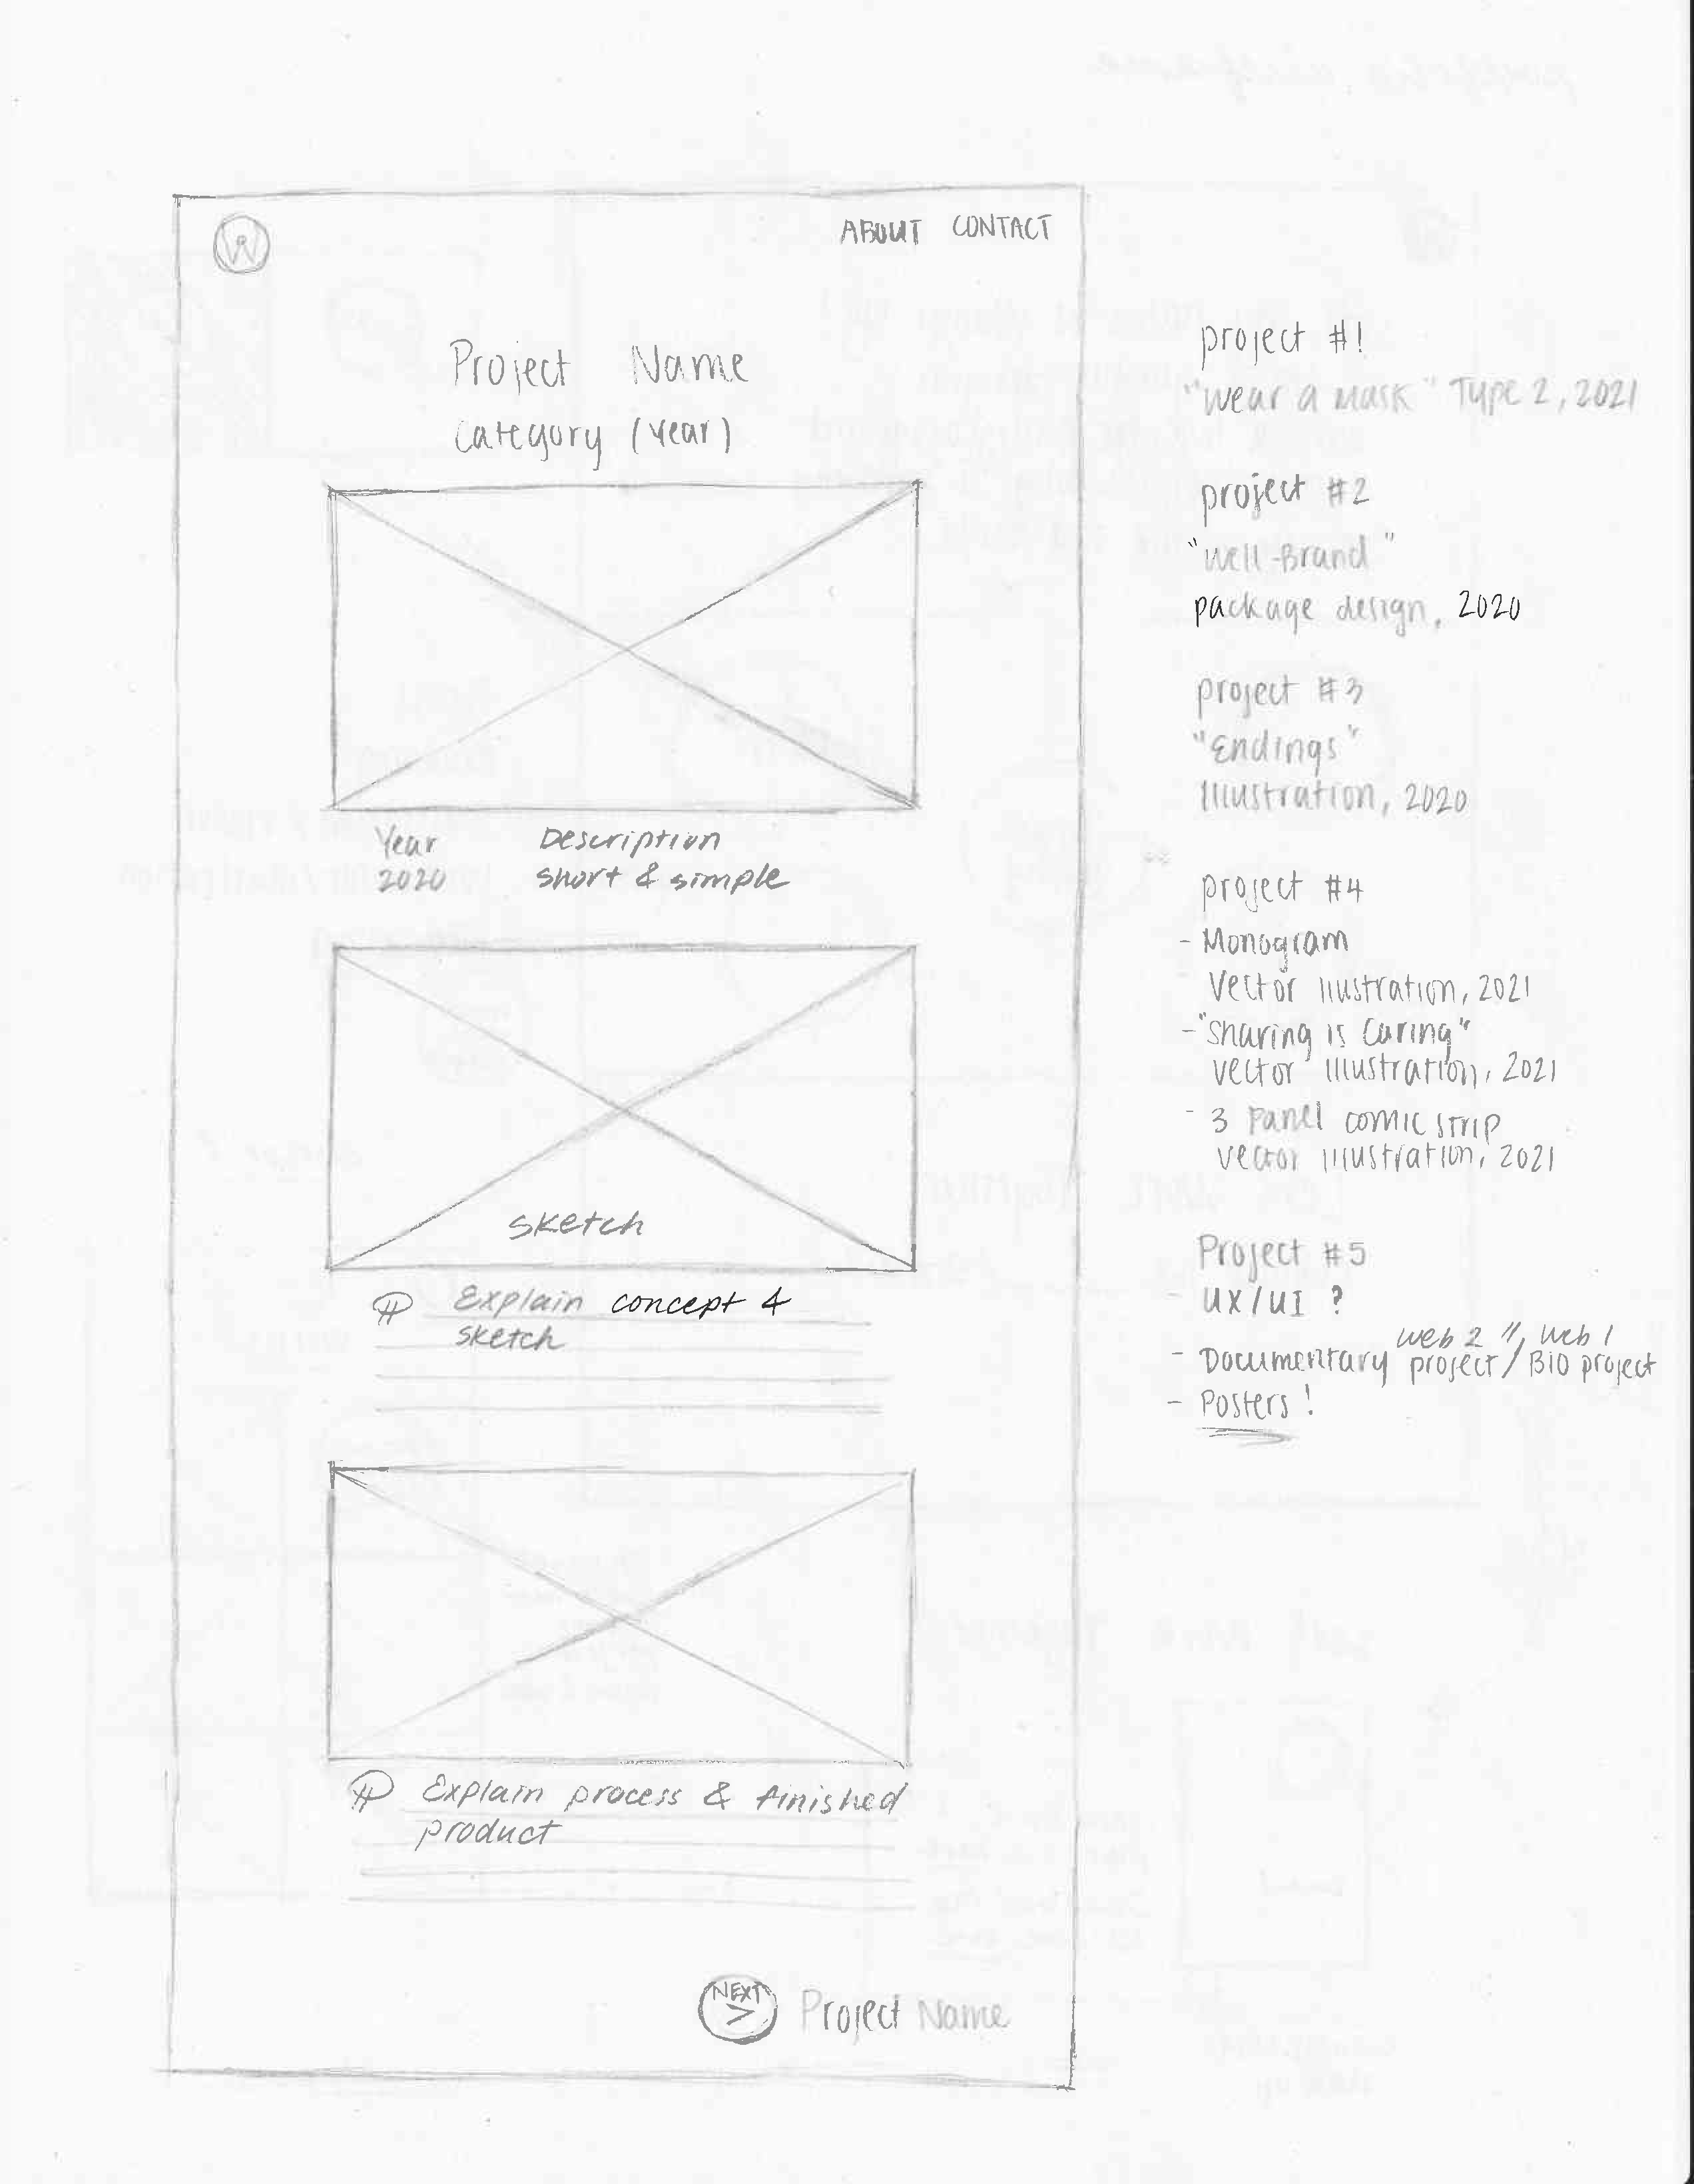 W
ABOUT CONTACT
Project Name
Category (Year)
Year
2020
Description
short & simple
sketch
Explain concept &
sketch
Explain process & finished
product
NEXT
>
Project Name
project #1
"Wear a Mask" Type 2, 2021
project #2
"Well-Brand"
package design, 2020
project #3
"Endings"
Illustration, 2020
project #4
- Monogram
Vector Illustration, 2021
- "Sharing is Caring"
vector Illustration, 2021
- 3 Panel comic strip
vector Illustration, 2021
Project #5
- UX/UI ?
web 2 web 1
- Documentary project / Bio project
- Posters!